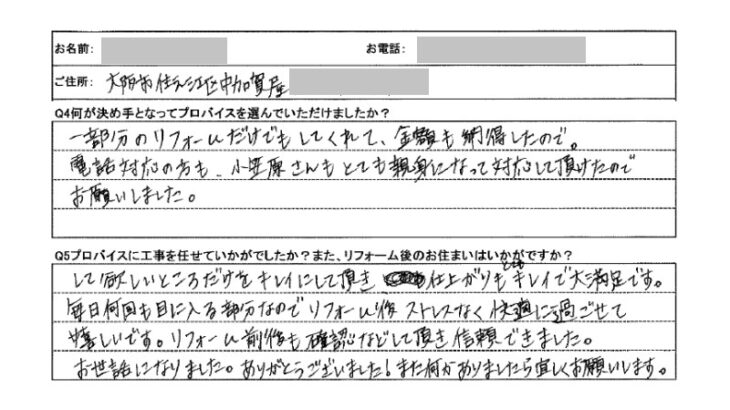 お名前: お電話:
ご住所: 大阪市住之江区中加賀屋
Q4何が決め手となってプロバイスを選んでいただけましたか?
一部分のリフォームだけでもしてくれて、金額も納得したので。
電話対応の方も、小笠原さんもとても親身になって対応して頂けたので
お願いしました。
Q5プロバイスに工事を任せていかがでしたか?また、リフォーム後のお住まいはいかがですか?
して欲しいところだけをキレイにして頂き 仕上がりもとてもキレイで大満足です。
毎日何回も目に入る部分なのでリフォーム後ストレスなく快適に過ごせて
嬉しいです。リフォーム前後も確認などして頂き信頼できました。
お世話になりました。ありがとうございました!また何かありましたら宜しくお願いします。